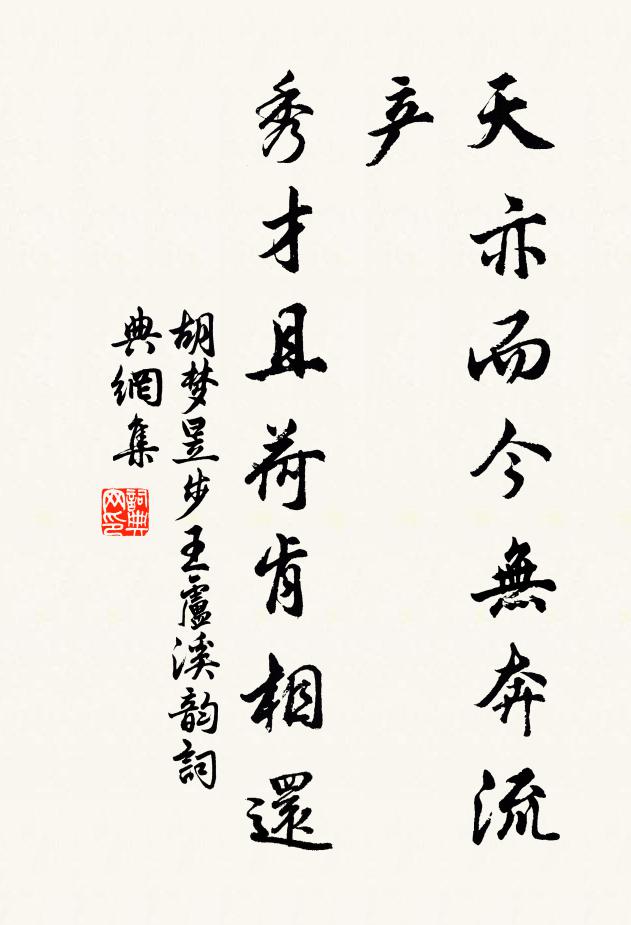 天亦而今無奔流
产
秀才且荷肯相還
胡梦昱步王盧溪韵詞
典網集
詞典
网印